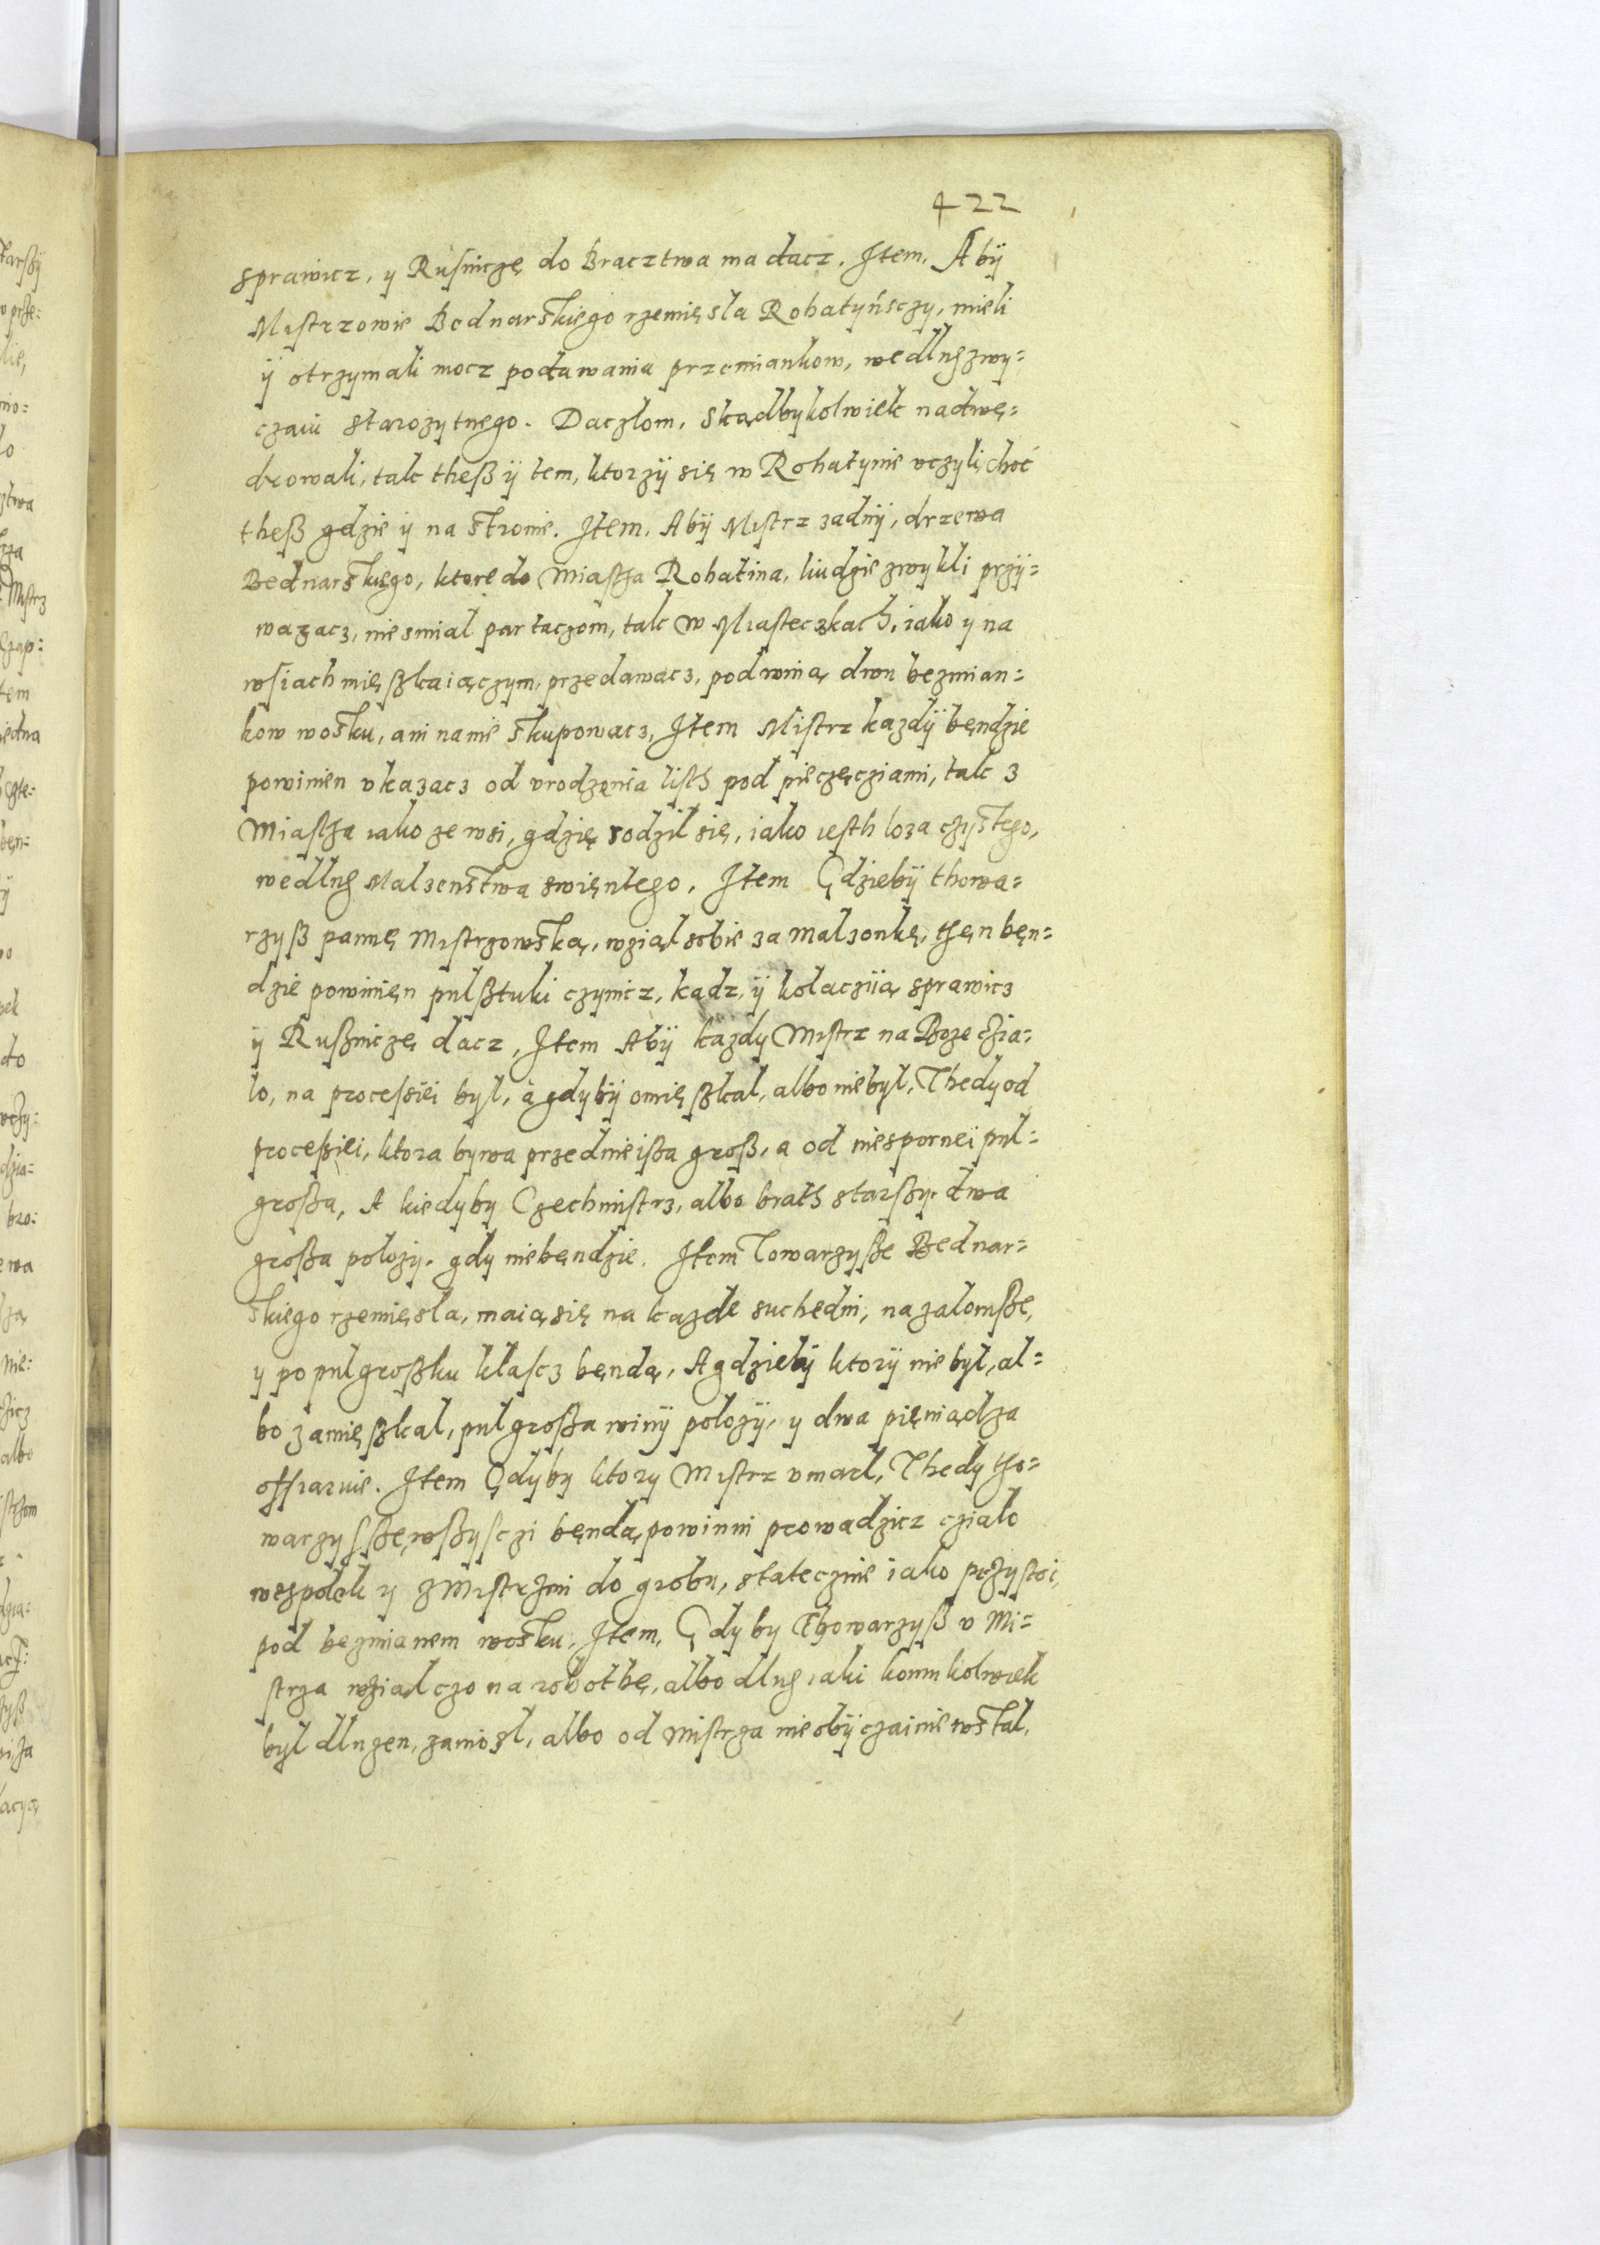 422
sprawicz, y Rusniczę do Bracztwa ma dacz. Item, Abÿ
Mistrzowie Bednarskiego rzemięsla Rohatyńsczy, mieli
ÿ otrzymali mocz podawania przemiankow, wedlug zwy=
czaiu starozytnego. Daczlom, skądbykolwiek nadwę=
drowali, tak theß ÿ tem, ktorzÿ się w Rohatynie uczyli, choć
theß gdzie ÿ na stronie. Item, Abÿ Mistrz zadnÿ, drzewa
Bednarskiego, ktore do Miastha Rohatina, liudzie zwykli przÿ=
wazacz, niesmial partaczom, tak w Miasteczkach, iako y na
wsiach mięßkaiączym, przedawacz, pod winą dwu bezmian=
kow wosku, ani na nie skupowacz, Item Mistrz kazdÿ bęndzie
powinien ukazacz od urodzenia listh pod pieczęcziami, tak z
Miastha iako ze wsi, gdzię rodzil się, iako iesth loza czystego,
wedlug Malzenstwa swięntego. Item Gdziebÿ thowa=
rzyß pannę Mistrzowską, wziąl sobie za malzonkę, then bęn=
dzie powinięn pulßtuki czynicz, kadz, ÿ kolacziią sprawicz
ÿ Rußniczę dacz, Item Abÿ kazdy Mistrz na Boze czia=
lo, na processiei byl, a gdybÿ omięßkal, albo niebyl, Thedy od
processiei, ktora bywa przednieißa groß, a od niespornei pul=
großa, A kiedyby Czechmistrz, albo brath starßy, dwa
großa polozy, gdy niebęndzie. Item Towarzyße Bednar=
skiego rzemięsla, maią się na kazde suchedni, na zalomße,
y po pulgroßku klascz bęndą, A gdziebÿ ktorÿ nie byl, al=
bo zamięßkal, pulgroßa winÿ polozÿ, y dwa pięniądza
offiaruie. Item Gdyby ktory Mistrz umarl, Thedy tho=
warzysße, wßysczi bęndą powinni prowadzicz czialo
wespolek y z Mistrzmi do grobu, statecznie iako przystoi,
pod bezmianem wosku, Item, Gdyby Thowarzyß u Mi=
strza wziąl czo na robothę, albo dlug iaki komukolwiek
byl dluzen, zaniosl, albo od Mistrza nieobÿczainie wstal,